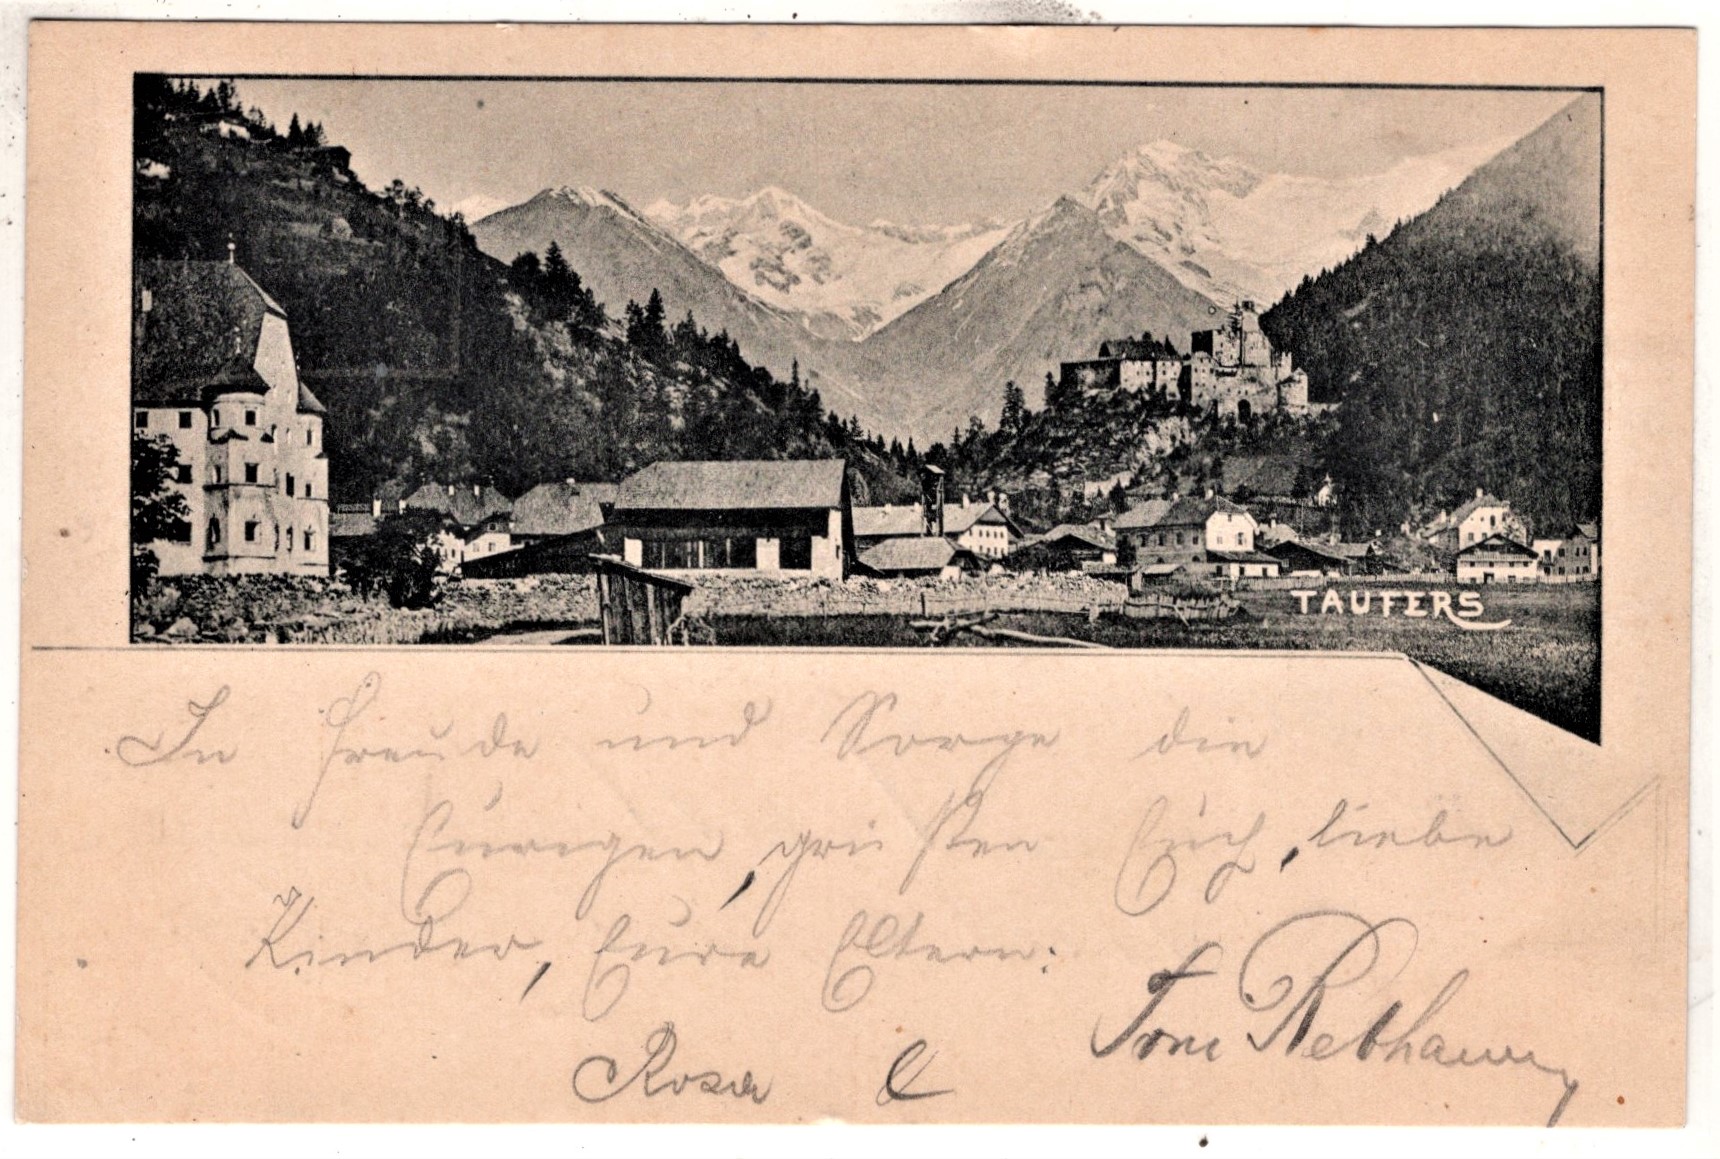 TAUFERS
In Freude und Sorge die
Eurigen, grüßen Euch, liebe
Kinder, Eure Eltern:
Rosa & Toni Rebhann